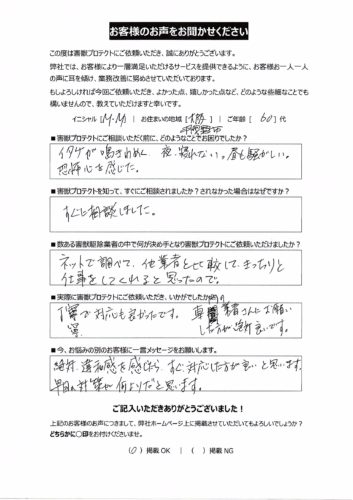 お客様のお声をお聞かせください
この度は害獣プロテクトにご依頼いただき、誠にありがとうございます。
弊社では、お客様により一層満足いただけるサービスを提供できるように、お客様お一人一人
の声に耳を傾け、業務改善に努めさせていただいております。
もしよろしければ今回ご依頼いただき、よかった点、嬉しかった点など、どのような些細なことでも
構いませんので、教えていただけますと幸いです。
イニシャル [M.M] | お住まいの地域 [ ] | ご年齢 [ 60 ] 代
■害獣プロテクトにご相談いただく前に、どのようなことでお困りでしたか？
イタチが鳴きわめく 夜 寝れない。昼も騒がしい。
恐怖心を感じた。
■害獣プロテクトを知って、すぐにご相談されましたか？されなかった場合はなぜですか？
すぐに相談しました。
■数ある害獣駆除業者の中で何が決め手となり害獣プロテクトにご依頼いただけましたか？
ネットで調べて、他業者と比較して、きっちりと
仕事をしてくれると思ったので。
■実際に害獣プロテクトにご依頼、いかがでしたか
丁寧で対応も良かったです。専門の業者さんにお願い
した方が絶対良いです。
■今、お悩みの別のお客様に一言メッセージをお願いします。
絶対、違和感を感じたら、すぐ対応した方が良いと思います。
早目の対策が何よりだと思います。
ご記入いただきありがとうございました！
上記のお客様のお声につきまして、弊社ホームページ上に掲載させていただいてもよろしいでしょうか？
どちらかに〇印をお付けくださいませ。
(〇) 掲載 OK | ( ) 掲載 NG